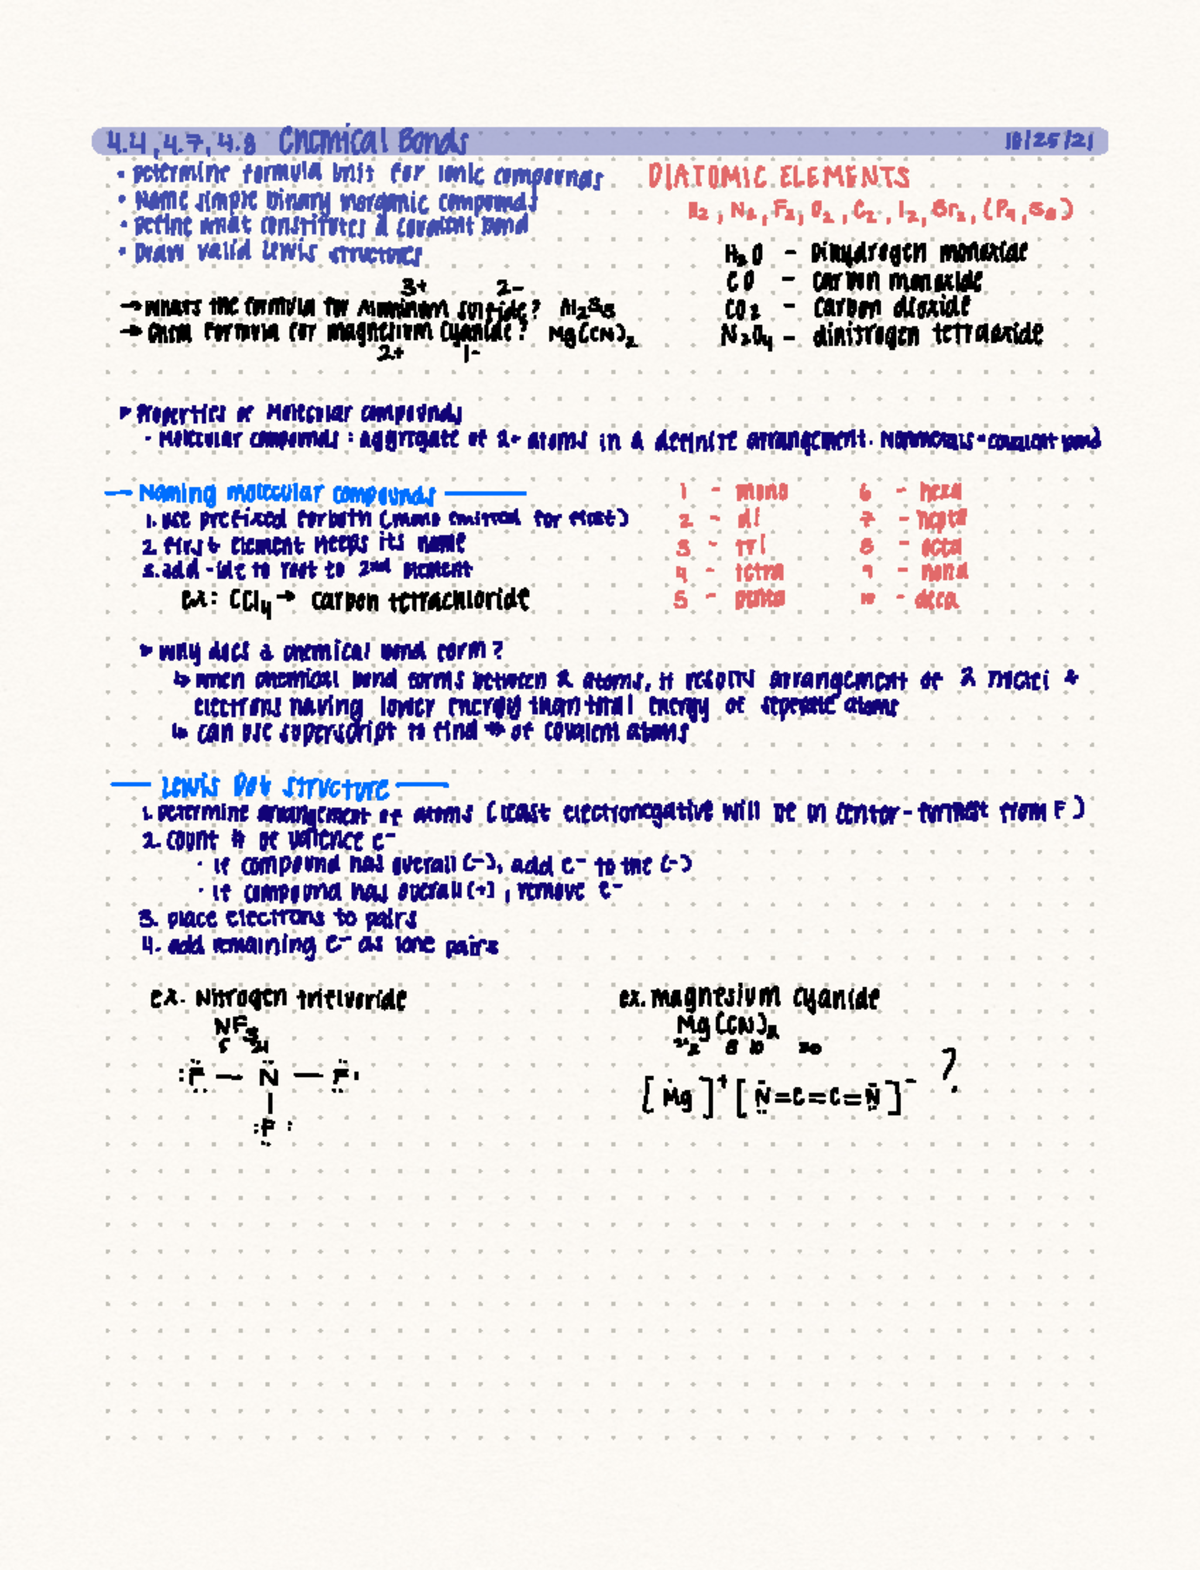 4.4, 4.7, 4.8 Chemical Bonds 10/25/21
• Determine formula unit for ionic compounds
• Name simple binary inorganic compounds
• Define what constitutes a covalent bond
• Draw valid Lewis structures
DIATOMIC ELEMENTS
H₂, N₂, F₂, O₂, C₂, I₂, Br₂, (P₄, S₈)
H₂O - Dihydrogen monoxide
CO - carbon monoxide
CO₂ - carbon dioxide
N₂O₄ - dinitrogen tetraoxide
3+ 2-
→ Whats the formula for Aluminum sulfide? Al₂S₃
→ Chem formula for magnesium cyanide? Mg(CN)₂
2+ 1-
▸ Properties of Molecular compounds
- Molecular compounds: aggregate of 2+ atoms in a definite arrangement. Nonmetals = covalent bond
— Naming molecular compounds —
1. use prefixed for both (mono omitted for first)
2. first element keeps its name
3. add -ide to root to 2nd element
ex: CCl₄ → carbon tetrachloride
1 - mono 6 - hexa
2 - di 7 - hepta
3 - tri 8 - octa
4 - tetra 9 - nona
5 - penta 10 - deca
▸ Why does a chemical bond form?
↳ when chemical bond forms between 2 atoms, it results arrangement of 2 nuclei +
electrons having lower energy than total energy of seperate atoms
↳ can use superscript to find # of covalent atoms
— Lewis Dot structure —
1. Determine arrangement of atoms (least electronegative will be in center - furthest from F)
2. count # of valence e⁻
• if compound has overall (-), add e⁻ to the (-)
• if compound has overall (+), remove e⁻
3. place electrons to pairs
4. add remaining e⁻ as lone pairs
ex. Nitrogen trifluoride
NF₃
5 21
F — N — F
|
F
ex. magnesium cyanide
Mg(CN)₂
8 10 20
[Mg]⁺ [N=C=C=N]⁻ ?